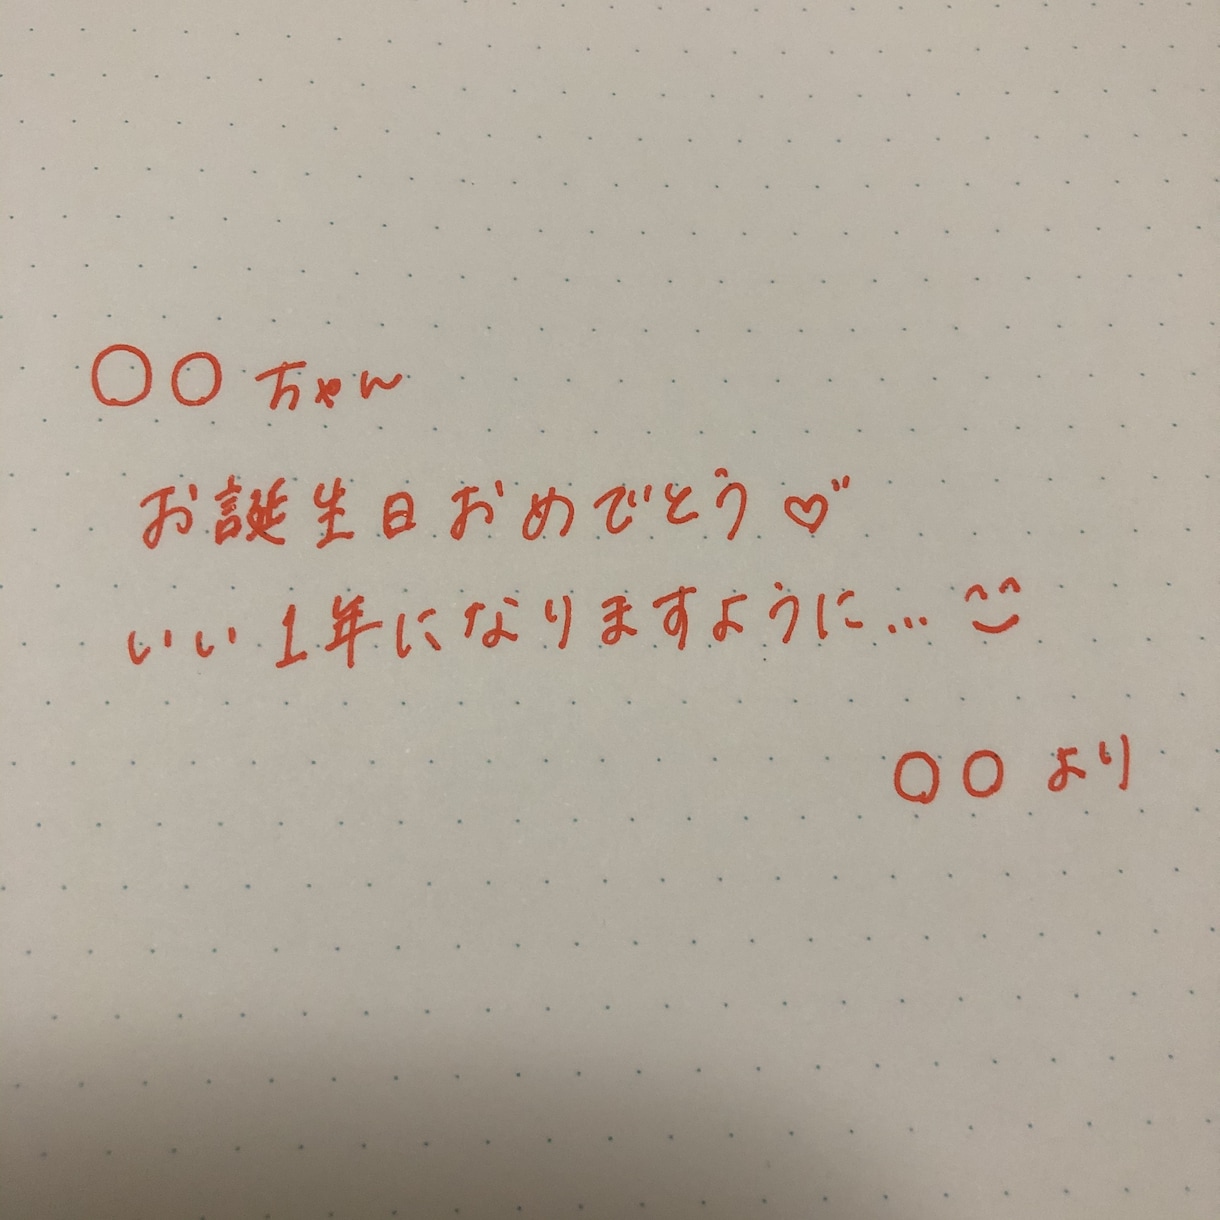 〇〇ちゃん
お誕生日おめでとう♡"
いい1年になりますように...^^
〇〇より